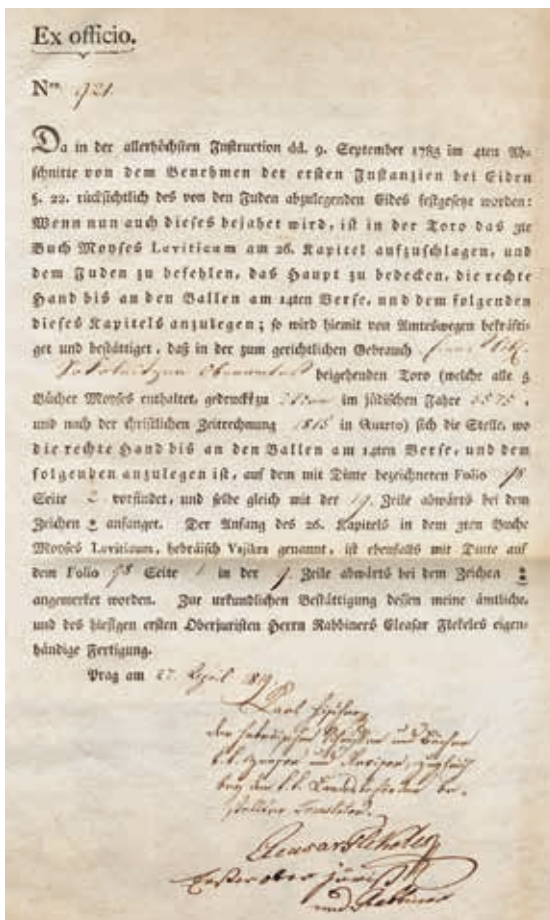 Ex officio.
Nro 921.
Da in der allerhöchsten Instruction dd. 9. September 1785 im 4ten Ab-
schnitte von dem Benehmen der ersten Instanzien bei Eiden
§. 22. rücksichtlich des von den Juden abzulegenden Eides festgesetzt worden:
Wenn nun auch dieses bejahet wird, ist in der Toro das 3te
Buch Moyses Leviticum am 26. Kapitel aufzuschlagen, und
dem Juden zu befehlen, das Haupt zu bedecken, die rechte
Hand bis an den Ballen am 14ten Verse, und dem folgenden
dieses Kapitels anzulegen; so wird hiemit von Amtswegen bekräfti-
get und bestättiget, daß in der zum gerichtlichen Gebrauch
beigehenden Toro (welche alle 5
Bücher Moyses enthaltet, gedruckt zu Wien im jüdischen Jahre 5575,
und nach der christlichen Zeitrechnung 1815 in Quarto) sich die Stelle, wo
die rechte Hand bis an den Ballen am 14ten Verse, und dem
folgenden anzulegen ist, auf dem mit Dinte bezeichneten Folio 98
Seite 2 vorfindet, und selbe gleich mit der 19. Zeile abwärts bei dem
Zeichen anfanget. Der Anfang des 26. Kapitels in dem 3ten Buche
Moyses Leviticum, hebräisch Vajikra genannt, ist ebenfalls mit Dinte auf
dem Folio 98 Seite 1 in der 9. Zeile abwärts bei dem Zeichen
angemerket worden. Zur urkundlichen Bestättigung dessen meine ämtliche,
und des hiesigen ersten Oberjuristen Herrn Rabbiners Eleasar Flekeles eigen-
händige Fertigung.
Prag am 27. April 819
Karl Fischer
der hebräischen Schriften und Bücher
k.k. Zensor und Revisor, zugleich
bey der k.k. be-
stellter Translator.
Eleasar Flekeles
Erster ober jurist
und Rabbiner